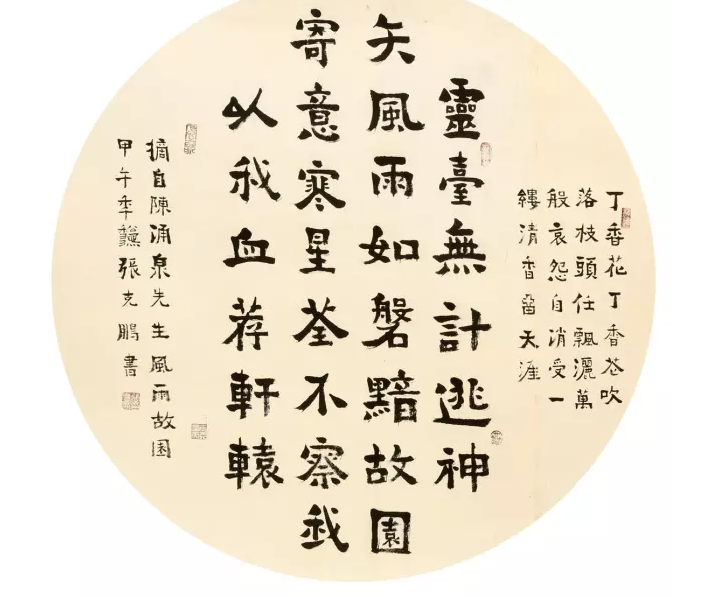 丁香花丁香花吹
落枝頭任飄灑萬
般哀怨自消受一
縷清香留天涯
靈臺無計逃神
矢風雨如磐黯故園
寄意寒星荃不察我
以我血荐軒轅
摘自陳涌泉先生風雨故園
甲午秊龝張克鵬書